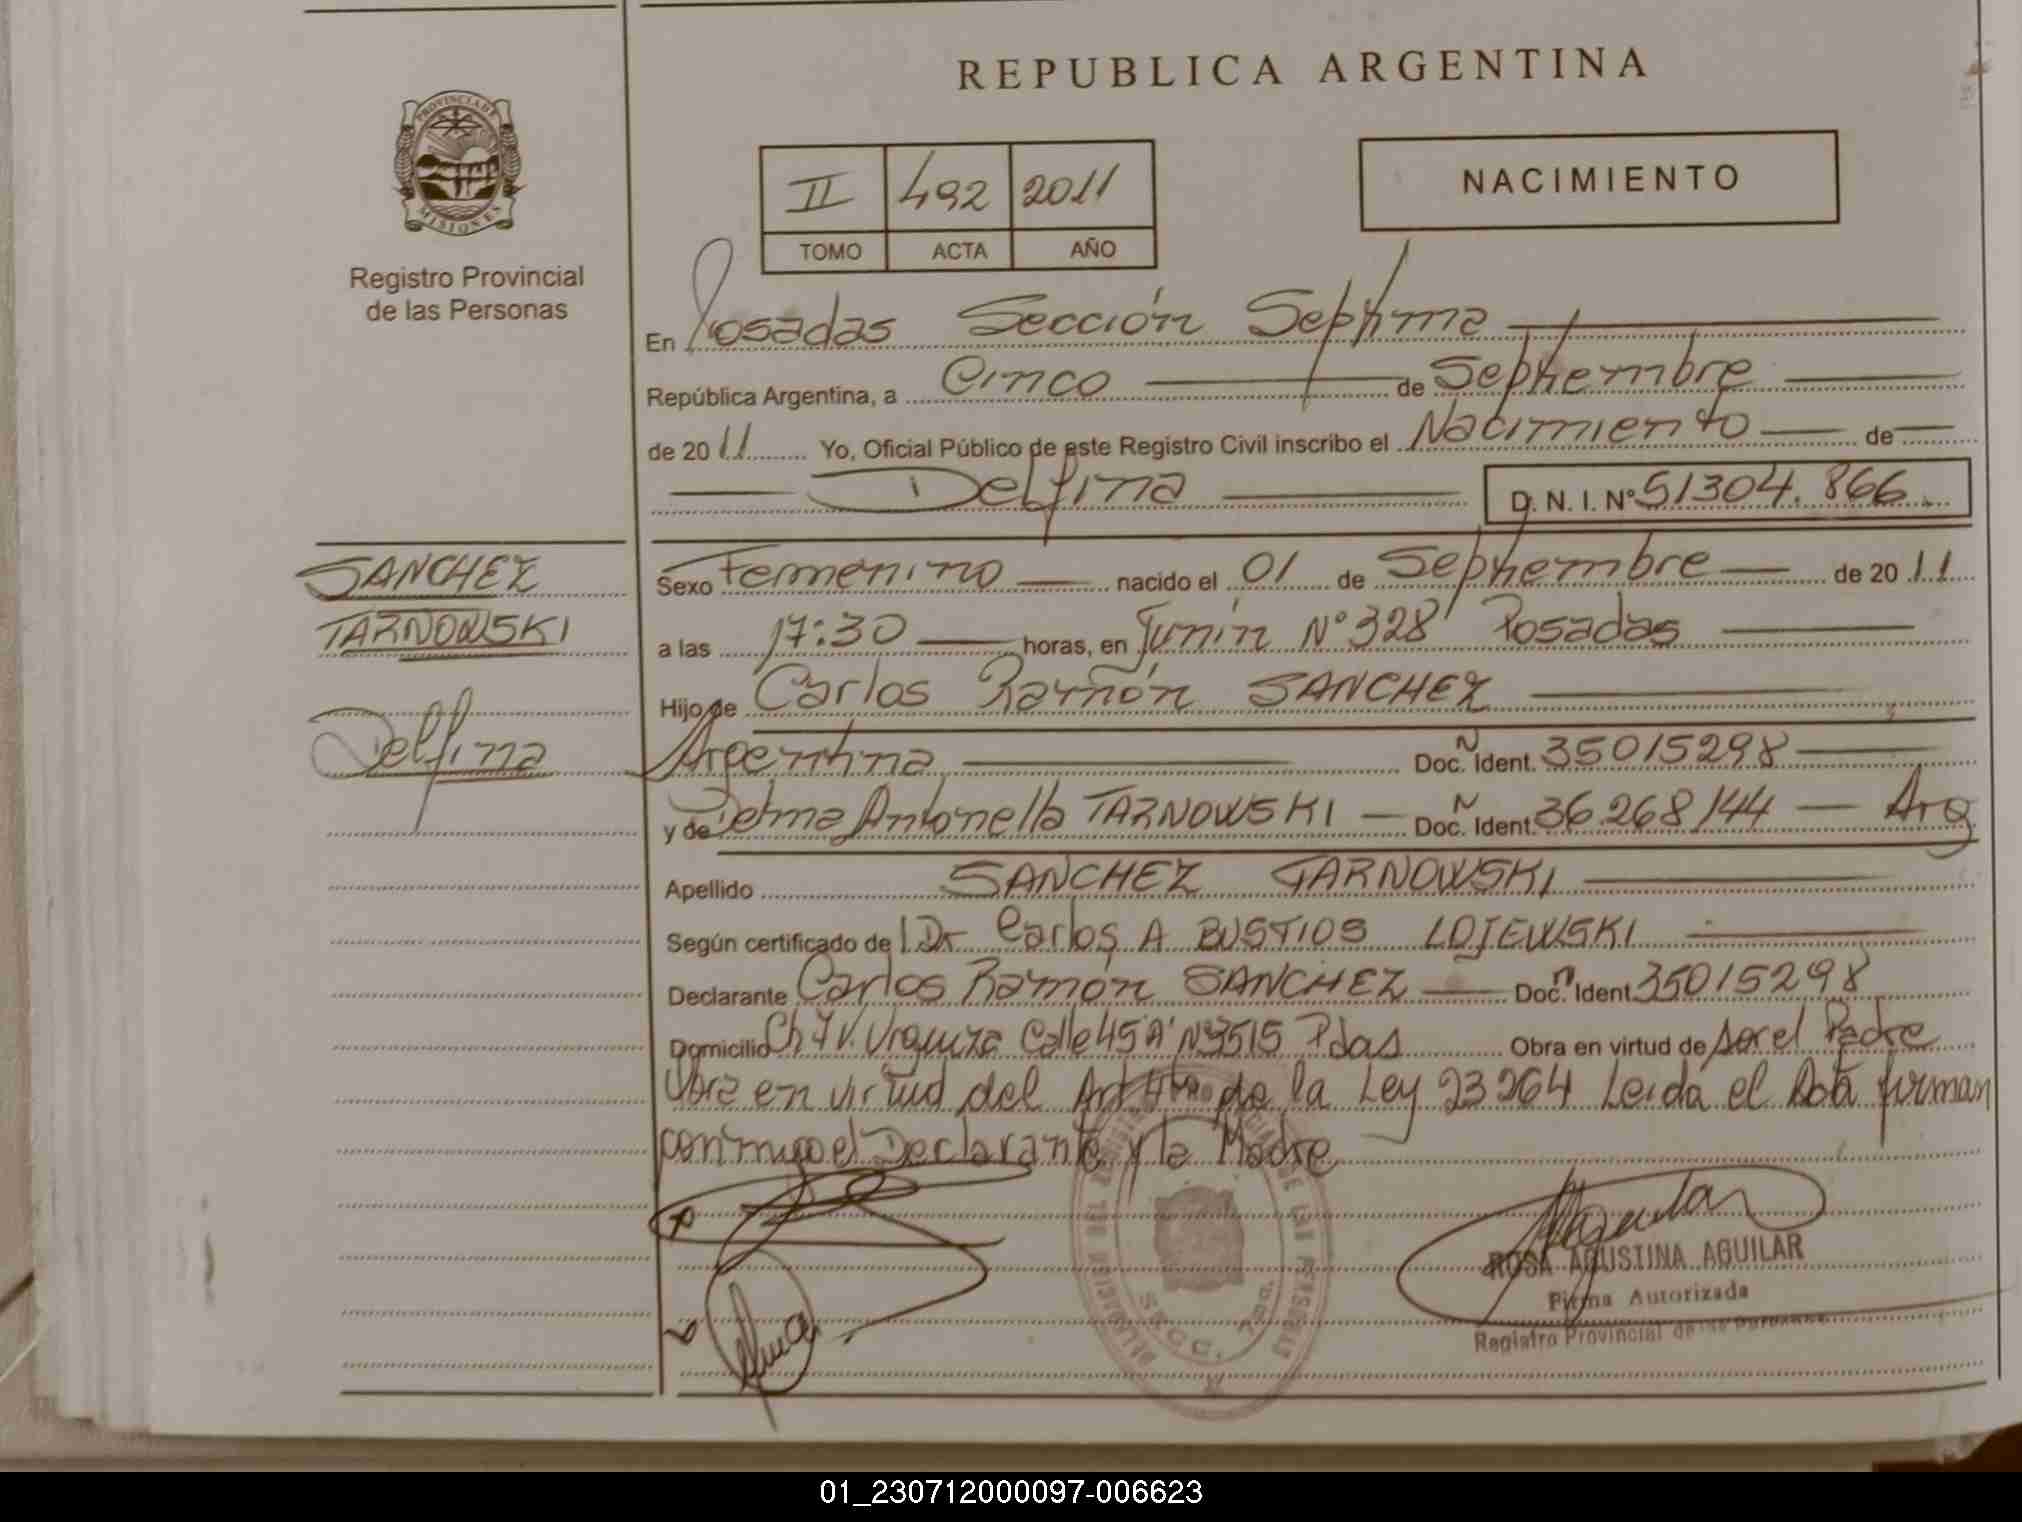 REPUBLICA ARGENTINA
PROVINCIA DE
MISIONES
Registro Provincial
de las Personas
II 492 2011
TOMO ACTA AÑO
NACIMIENTO
En Posadas Sección Septima
República Argentina, a Cinco de Septiembre
de 2011 Yo, Oficial Público de este Registro Civil inscribo el Nacimiento de
Delfina D. N. I. Nº 51304.866
SANCHEZ
TARNOWSKI
Delfina
Sexo Femenino nacido el 01 de Septiembre de 2011
a las 17:30 horas, en Junín Nº 328 Posadas
Hijo de Carlos Ramón SANCHEZ
Argentina Doc. Ident. 35015298
y de Antonella TARNOWSKI Doc. Ident. 36.268144 Arg
Apellido SANCHEZ TARNOWSKI
Según certificado de Dr Carlos A BUSTIOS LOJEWSKI
Declarante Carlos Ramón SANCHEZ Doc. Ident 35015298
Domicilio Ch 7 V. Urquiza Calle 45 "A" Nº 3515 Pdas Obra en virtud de ser el Padre
Obra en virtud del Art de la Ley 23264 Leida el Acta firman
conmigo el Declarante y la Madre
SECC. 7ma.
ROSA AGUSTINA AGUILAR
Firma Autorizada
Registro Provincial de las Personas
01_230712000097-006623